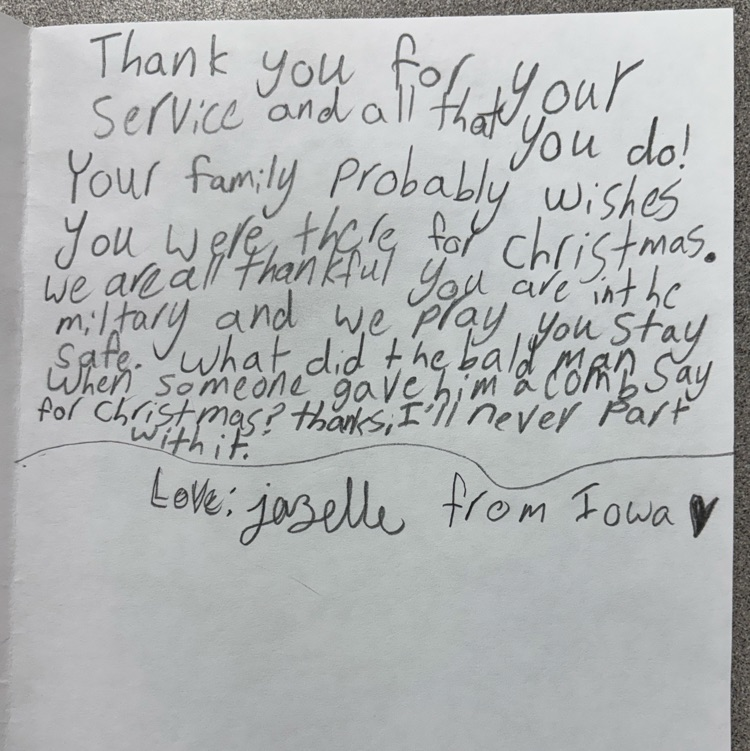 Thank you for your
service and all that
you do!
Your family probably wishes
you were there for christmas.
we are all thankful you are in the
miltary and we pray you stay
safe. What did the bald man say
when someone gave him a comb
for christmas? thanks, I'll never part
with it.
Love: jazelle from Iowa ♥